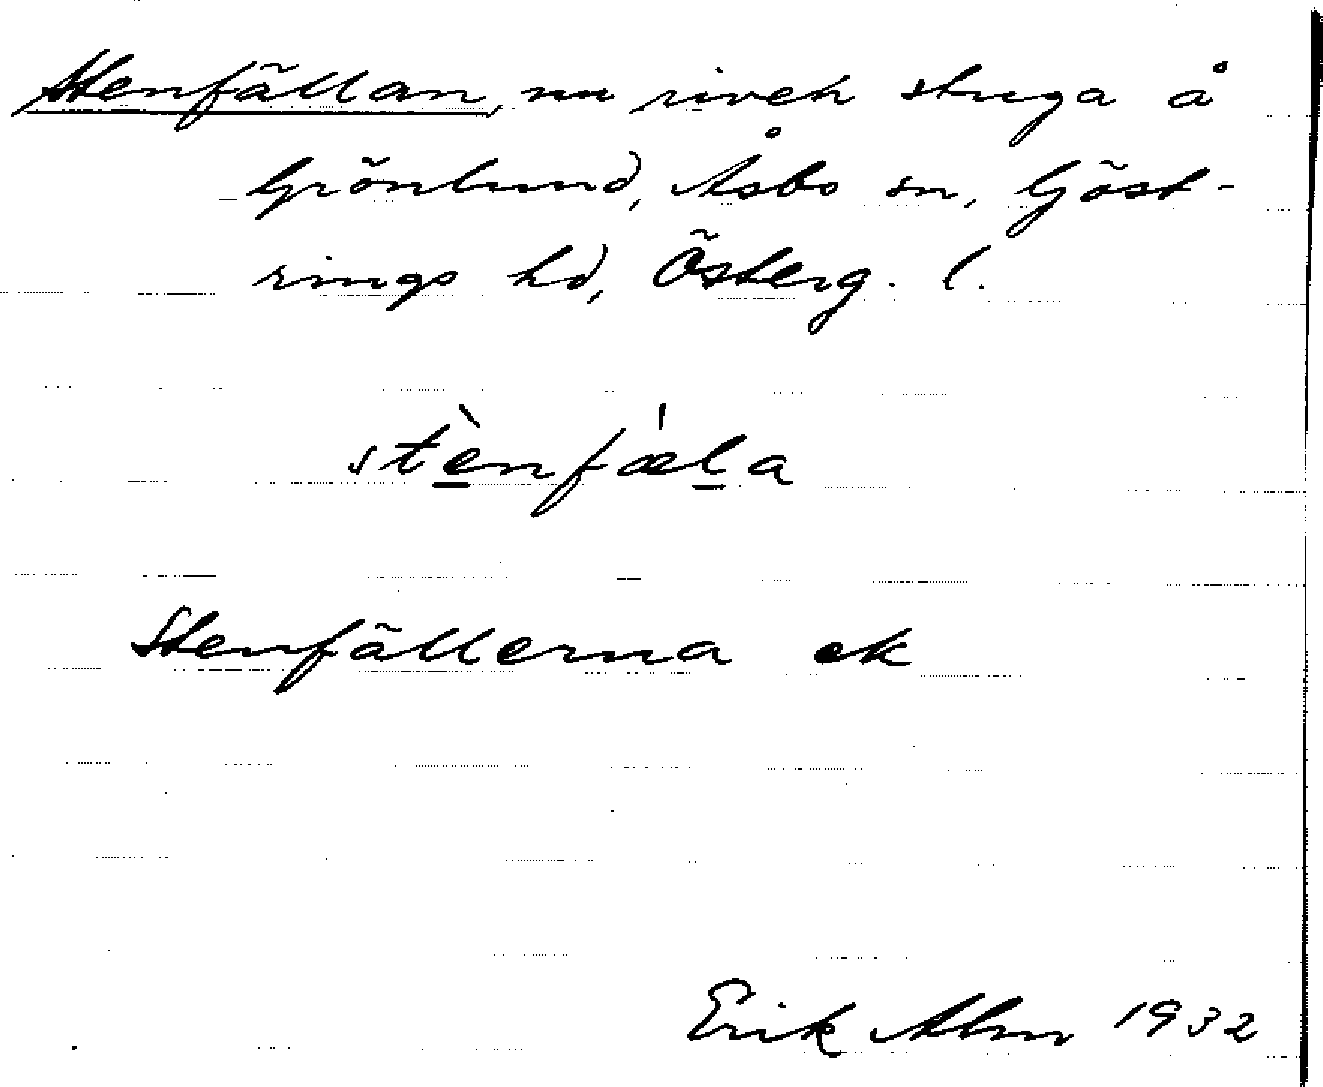 Stenfällan, nu riven stuga å
Grönlund, Åsbo sn, Göst-
rings hd, Österg. l.
stè̱nfæ̍ḻa
Stenfällerna ek
Erik Alm 1932